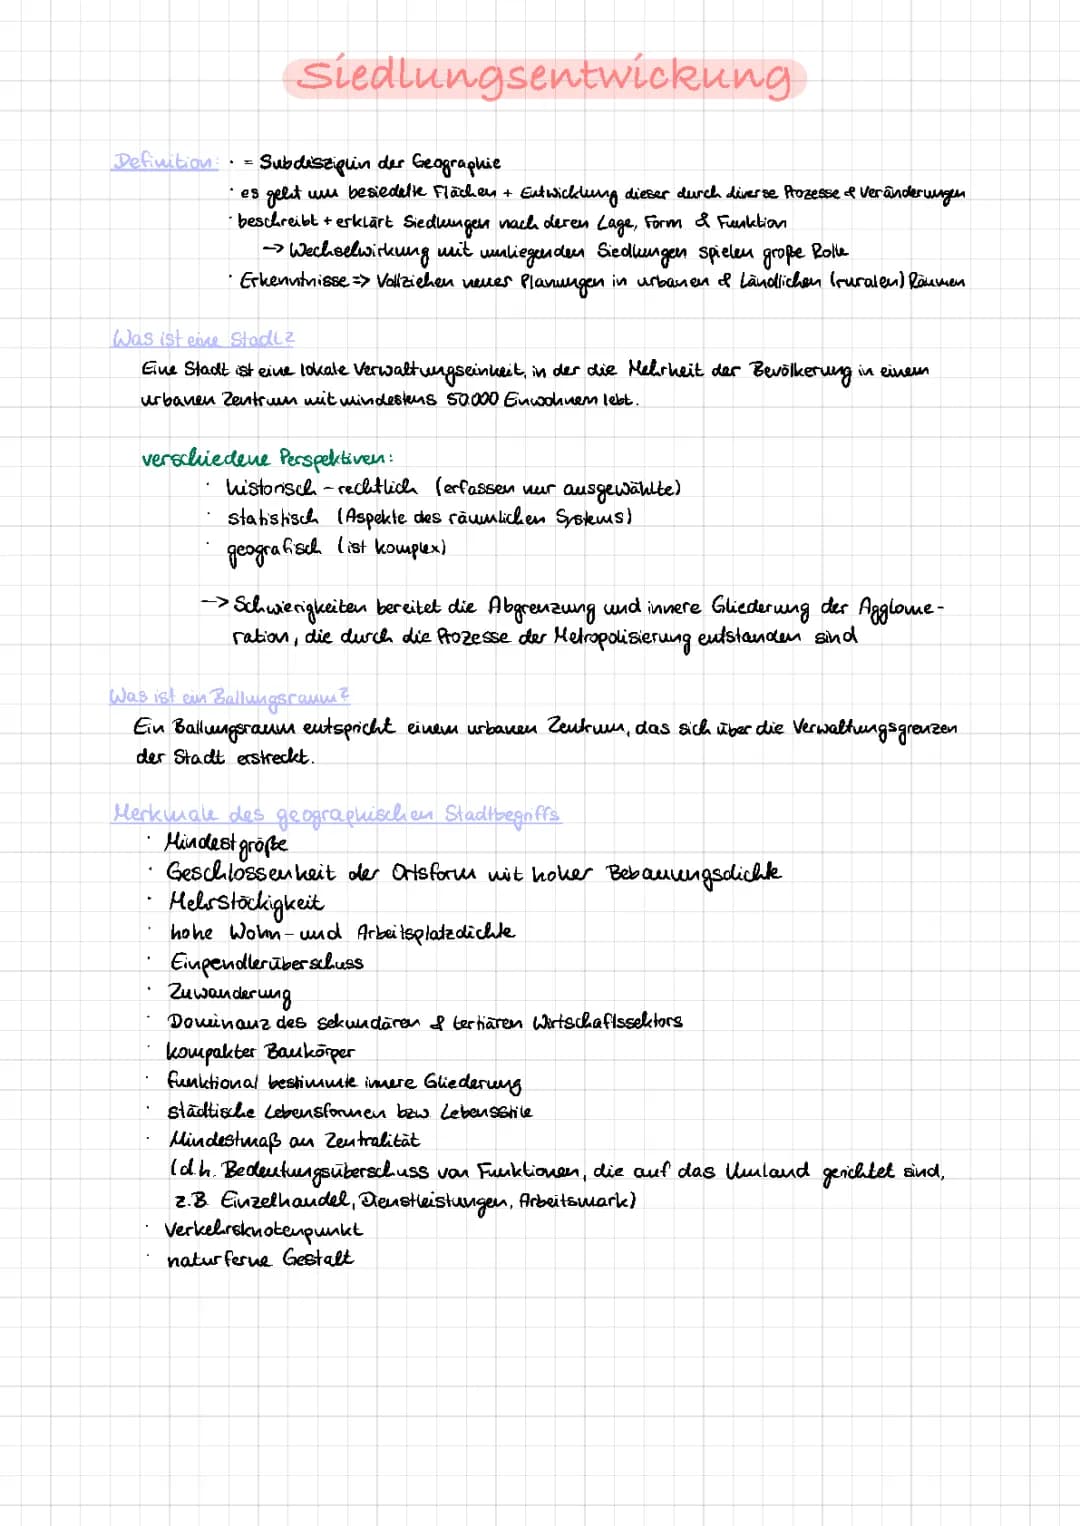 Siedlungsentwickung
Definition: · = Subdisziplin der Geographie
· es geht um besiedelte Flächen + Entwicklung dieser durch diverse Prozesse & Veränderungen
· beschreibt + erklärt Siedlungen nach deren Lage, Form & Funktion
→ Wechselwirkung mit umliegenden Siedlungen spielen große Rolle
· Erkenntnisse => Vollziehen neuer Planungen in urbanen & Ländlichen (ruralen) Räumen
Was ist eine Stadt?
Eine Stadt ist eine lokale Verwaltungseinheit, in der die Mehrheit der Bevölkerung in einem
urbanen Zentrum mit mindestens 50.000 Einwohnern lebt.
verschiedene Perspektiven:
· historisch - rechtlich (erfassen nur ausgewählte)
· statistisch (Aspekte des räumlichen Systems)
· geografisch (ist komplex)
--> Schwierigkeiten bereitet die Abgrenzung und innere Gliederung der Agglome-
ration, die durch die Prozesse der Metropolisierung entstanden sind
Was ist ein Ballungsraum?
Ein Ballungsraum entspricht einem urbanen Zentrum, das sich über die Verwaltungsgrenzen
der Stadt erstreckt.
Merkmale des geographischen Stadtbegriffs
· Mindestgröße
· Geschlossenheit der Ortsform mit hoher Bebauungsdichte
· Mehrstöckigkeit
· hohe Wohn- und Arbeitsplatzdichte
· Einpendlerüberschuss
· Zuwanderung
· Dominanz des sekundären & tertiären Wirtschaftssektors
· kompakter Baukörper
· funktional bestimmte innere Gliederung
· städtische Lebensformen bzw. Lebensstile
· Mindestmaß an Zentralität
(d.h. Bedeutungsüberschuss von Funktionen, die auf das Umland gerichtet sind,
z.B. Einzelhandel, Dienstleistungen, Arbeitsmark)
· Verkehrsknotenpunkt
· naturferne Gestalt